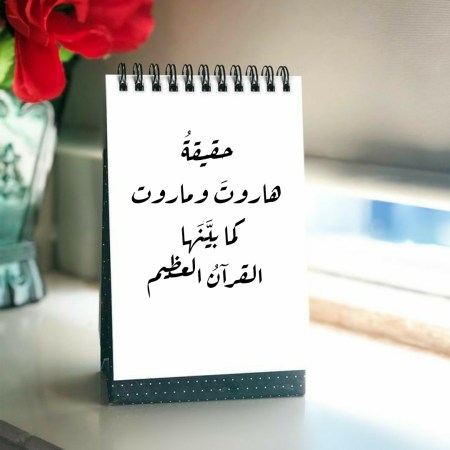 حقيقةُ
هاروتَ وماروت
كما بيَّنَها
القرآنُ العظيم